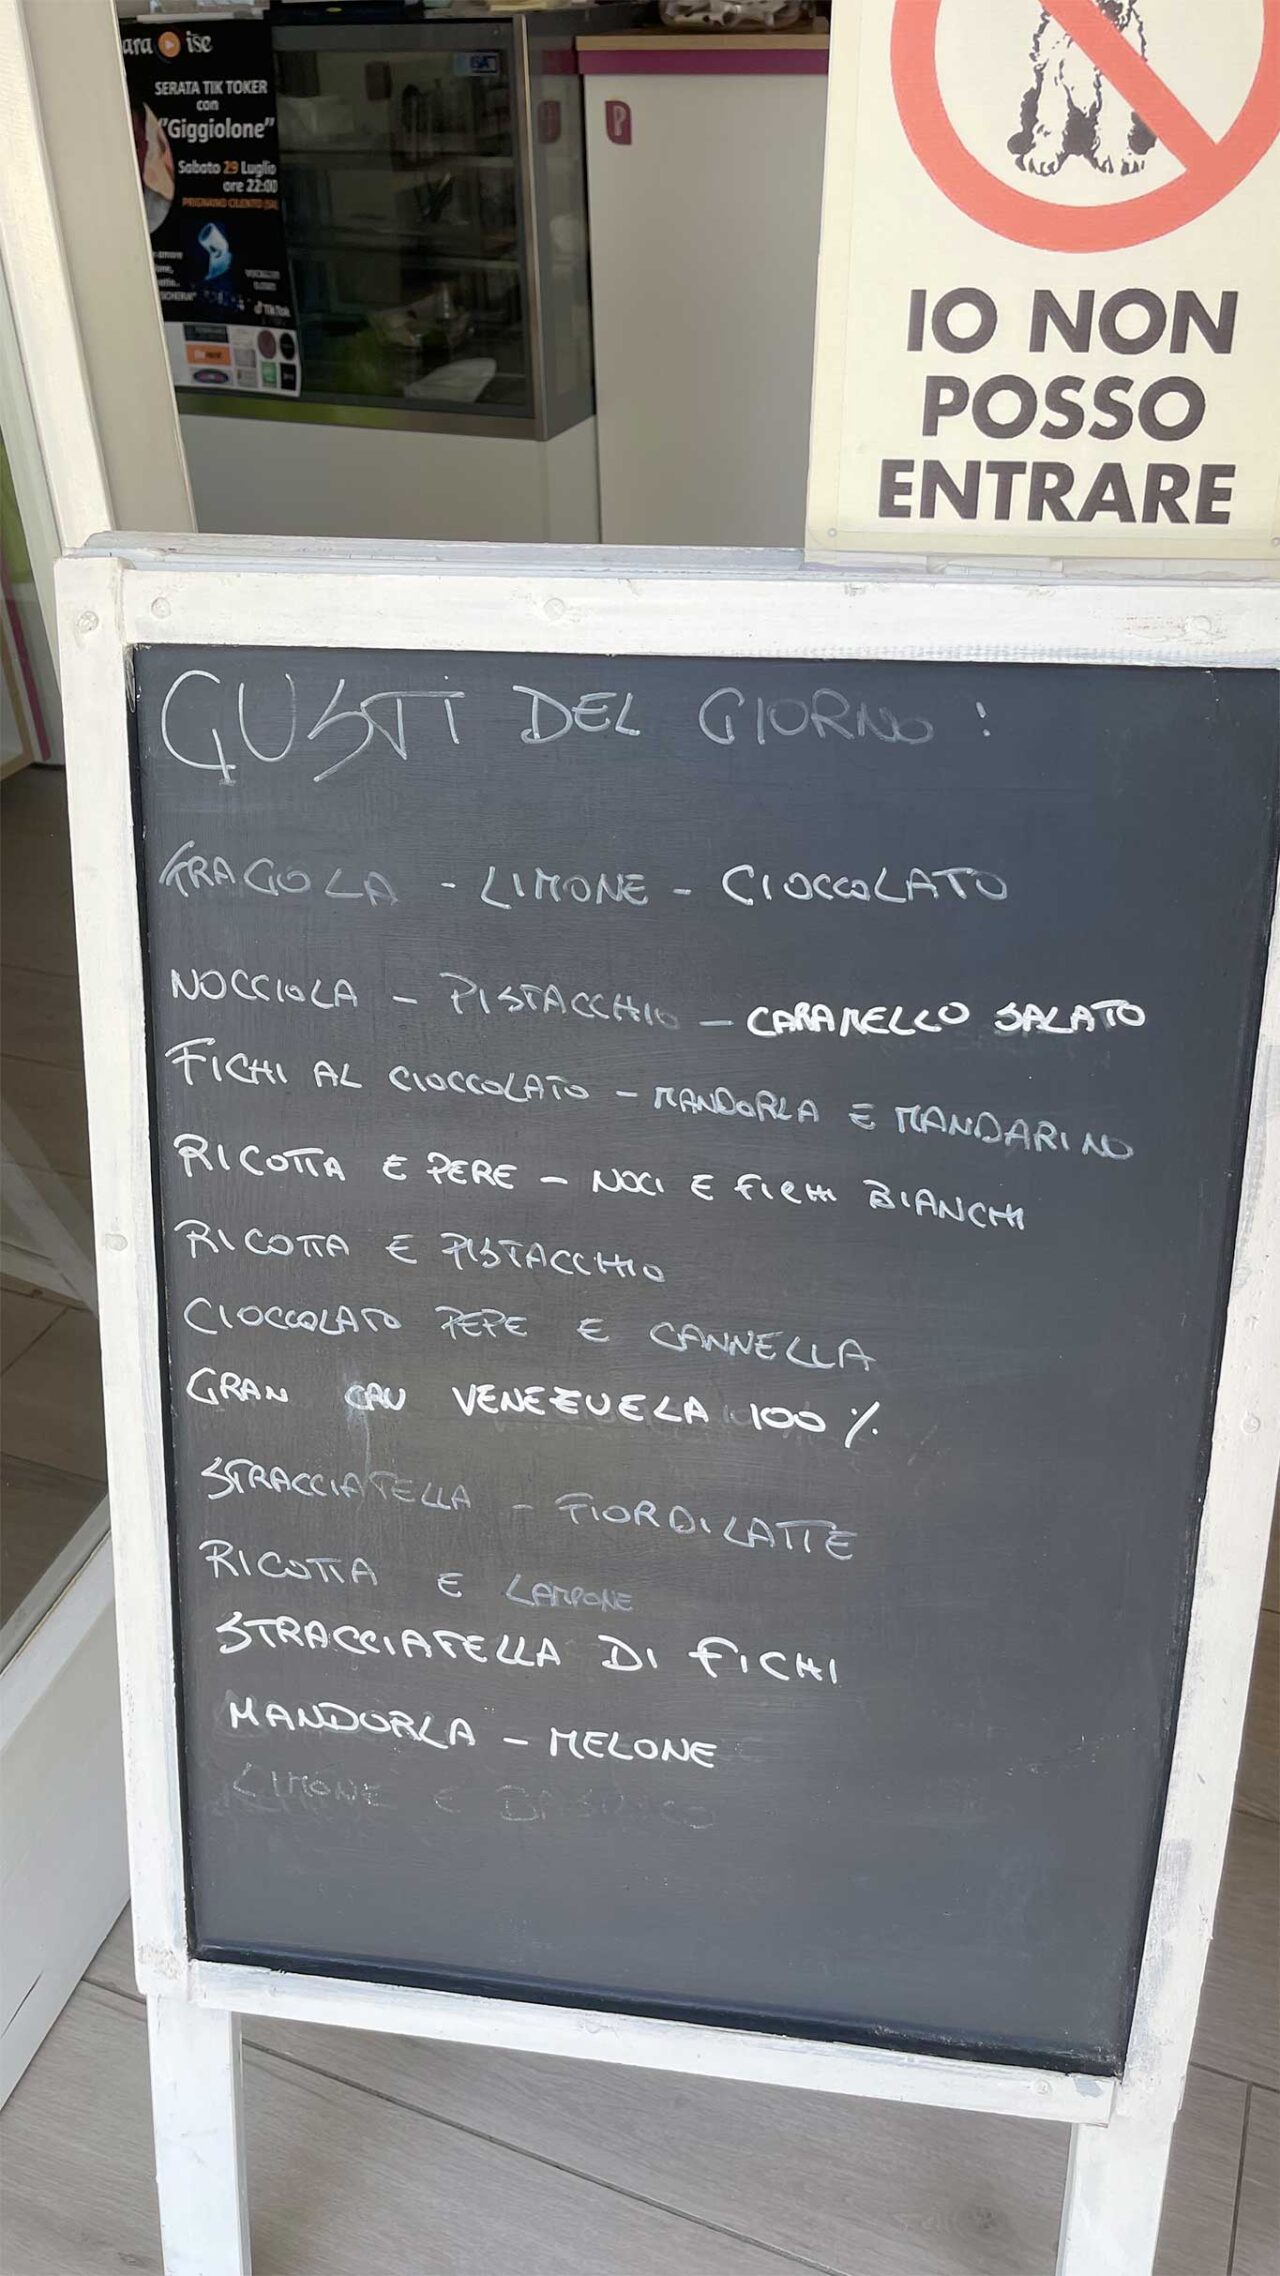 ise
SERATA TIK TOKER
con
"Giggiolone"
Sabato 29 Luglio
ore 22:00
PRIGNANO CILENTO (SA)
TikTok
P
IO NON
POSSO
ENTRARE
GUSTI DEL GIORNO :
FRAGOLA - LIMONE - CIOCCOLATO
NOCCIOLA - PISTACCHIO - CARAMELLO SALATO
FICHI AL CIOCCOLATO - MANDORLA E MANDARINO
RICOTTA E PERE - NOCI E FICHI BIANCHI
RICOTTA E PISTACCHIO
CIOCCOLATO PEPE E CANNELLA
GRAN CAU VENEZUELA 100 %
STRACCIATELLA - FIORDILATTE
RICOTTA E LAMPONE
STRACCIATELLA DI FICHI
MANDORLA - MELONE
LIMONE E BASILICO